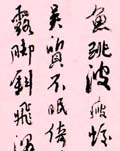 魚跳波瘦蛟
吳質不眠倚
露脚斜飛濕